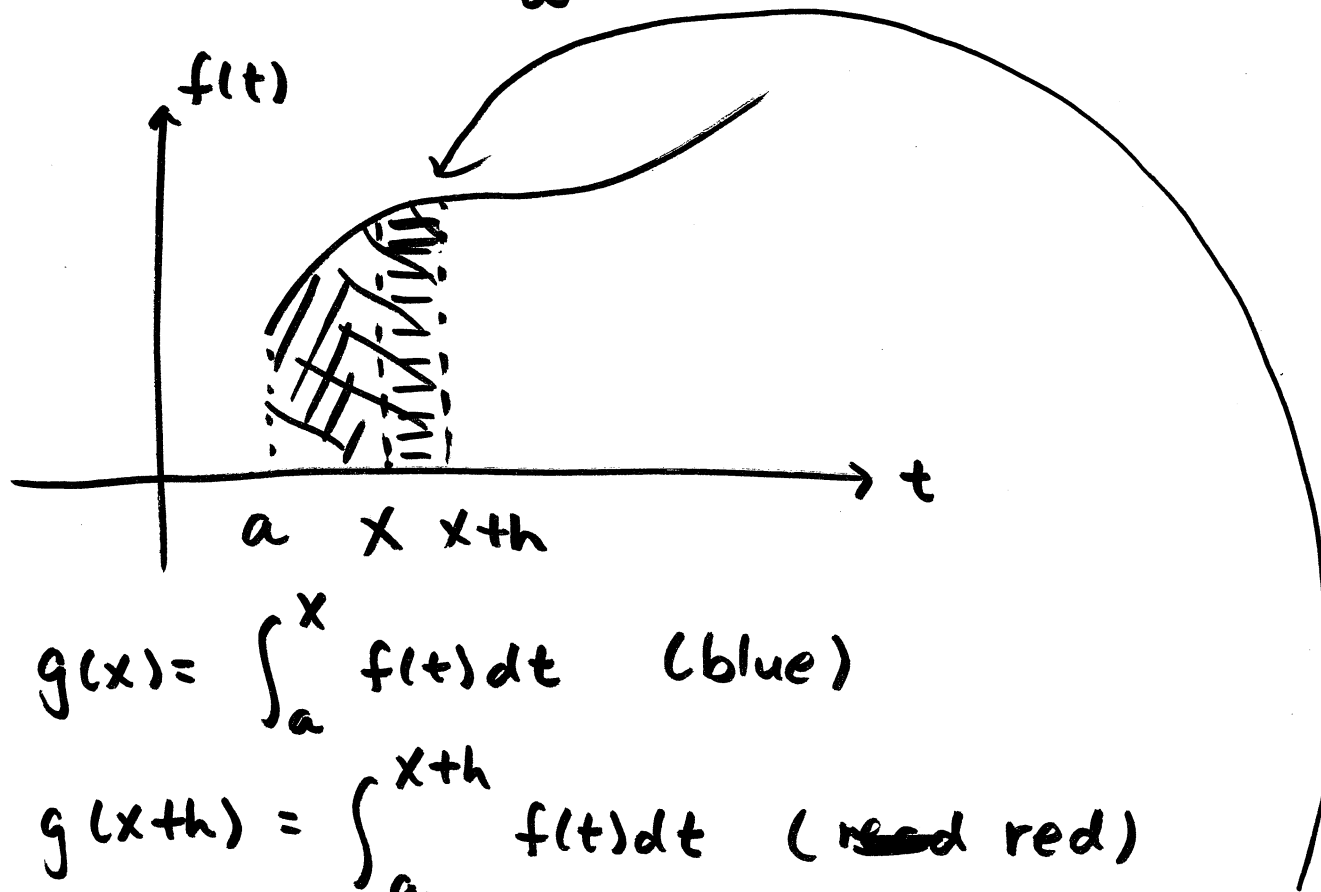 f(t)
t
a x x+h
g(x)= ∫_a^x f(t)dt (blue)
g(x+h) = ∫_a^{x+h} f(t)dt ( red)